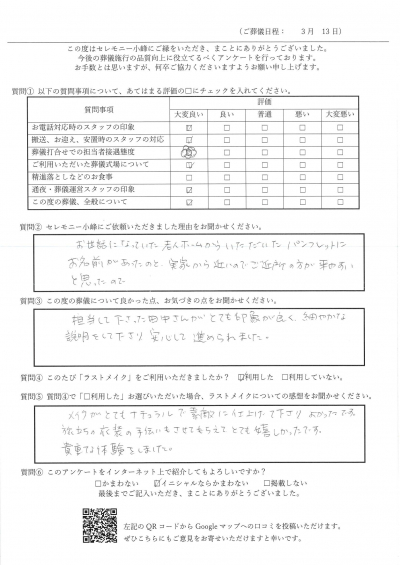 (ご葬儀日程: 3月 13日)
この度はセレモニー小峰にご縁をいただき、まことにありがとうございました。
今後の葬儀施行の品質向上に役立てるべくアンケートを行っております。
お手数とは思いますが、何卒ご協力くださいますようお願い申し上げます。
質問① 以下の質問事項について、あてはまる評価の□にチェックを入れてください。
質問事項 評価
大変良い 良い 普通 悪い 大変悪い
お電話対応時のスタッフの印象 ☑ □ □ □ □
搬送、お迎え、安置時のスタッフの対応 ☑ □ □ □ □
葬儀打合せでの担当者接遇態度 ☑ □ □ □ □
ご利用いただいた葬儀式場について ☑ □ □ □ □
精進落としなどのお食事 □ □ □ □ □
通夜・葬儀運営スタッフの印象 ☑ □ □ □ □
この度の葬儀、全般について ☑ □ □ □ □
質問② セレモニー小峰にご依頼いただきました理由をお聞かせください。
お世話になっていた老人ホームからいただいていたパンフレットに
お名前があったのと、実家から近いのでご近所の方が来やすい
と思ったので
質問③ この度の葬儀について良かった点、お気づきの点をお聞かせください。
担当して下さった田中さんがとても印象が良く、細やかな
説明をして下さり安心して進められました。
質問④ このたび「ラストメイク」をご利用いただきましたか? ☑利用した □利用していない。
質問⑤ 質問④で「□利用した」お選びいただいた場合、ラストメイクについての感想をお聞かせください。
メイクがとてもナチュラルで素敵に仕上げて下さりよかったです。
旅立ちの衣装の手伝いもさせてもらえてとても嬉しかったです。
貴重な体験をしました。
質問⑥ このアンケートをインターネット上で紹介してもよろしいですか?
□かまわない ☑イニシャルならかまわない □掲載しない
最後までご記入いただき、まことにありがとうございました。
左記のQRコードからGoogleマップへの口コミを投稿いただけます。
ぜひこちらにもご意見をお寄せいただけますと幸いです。